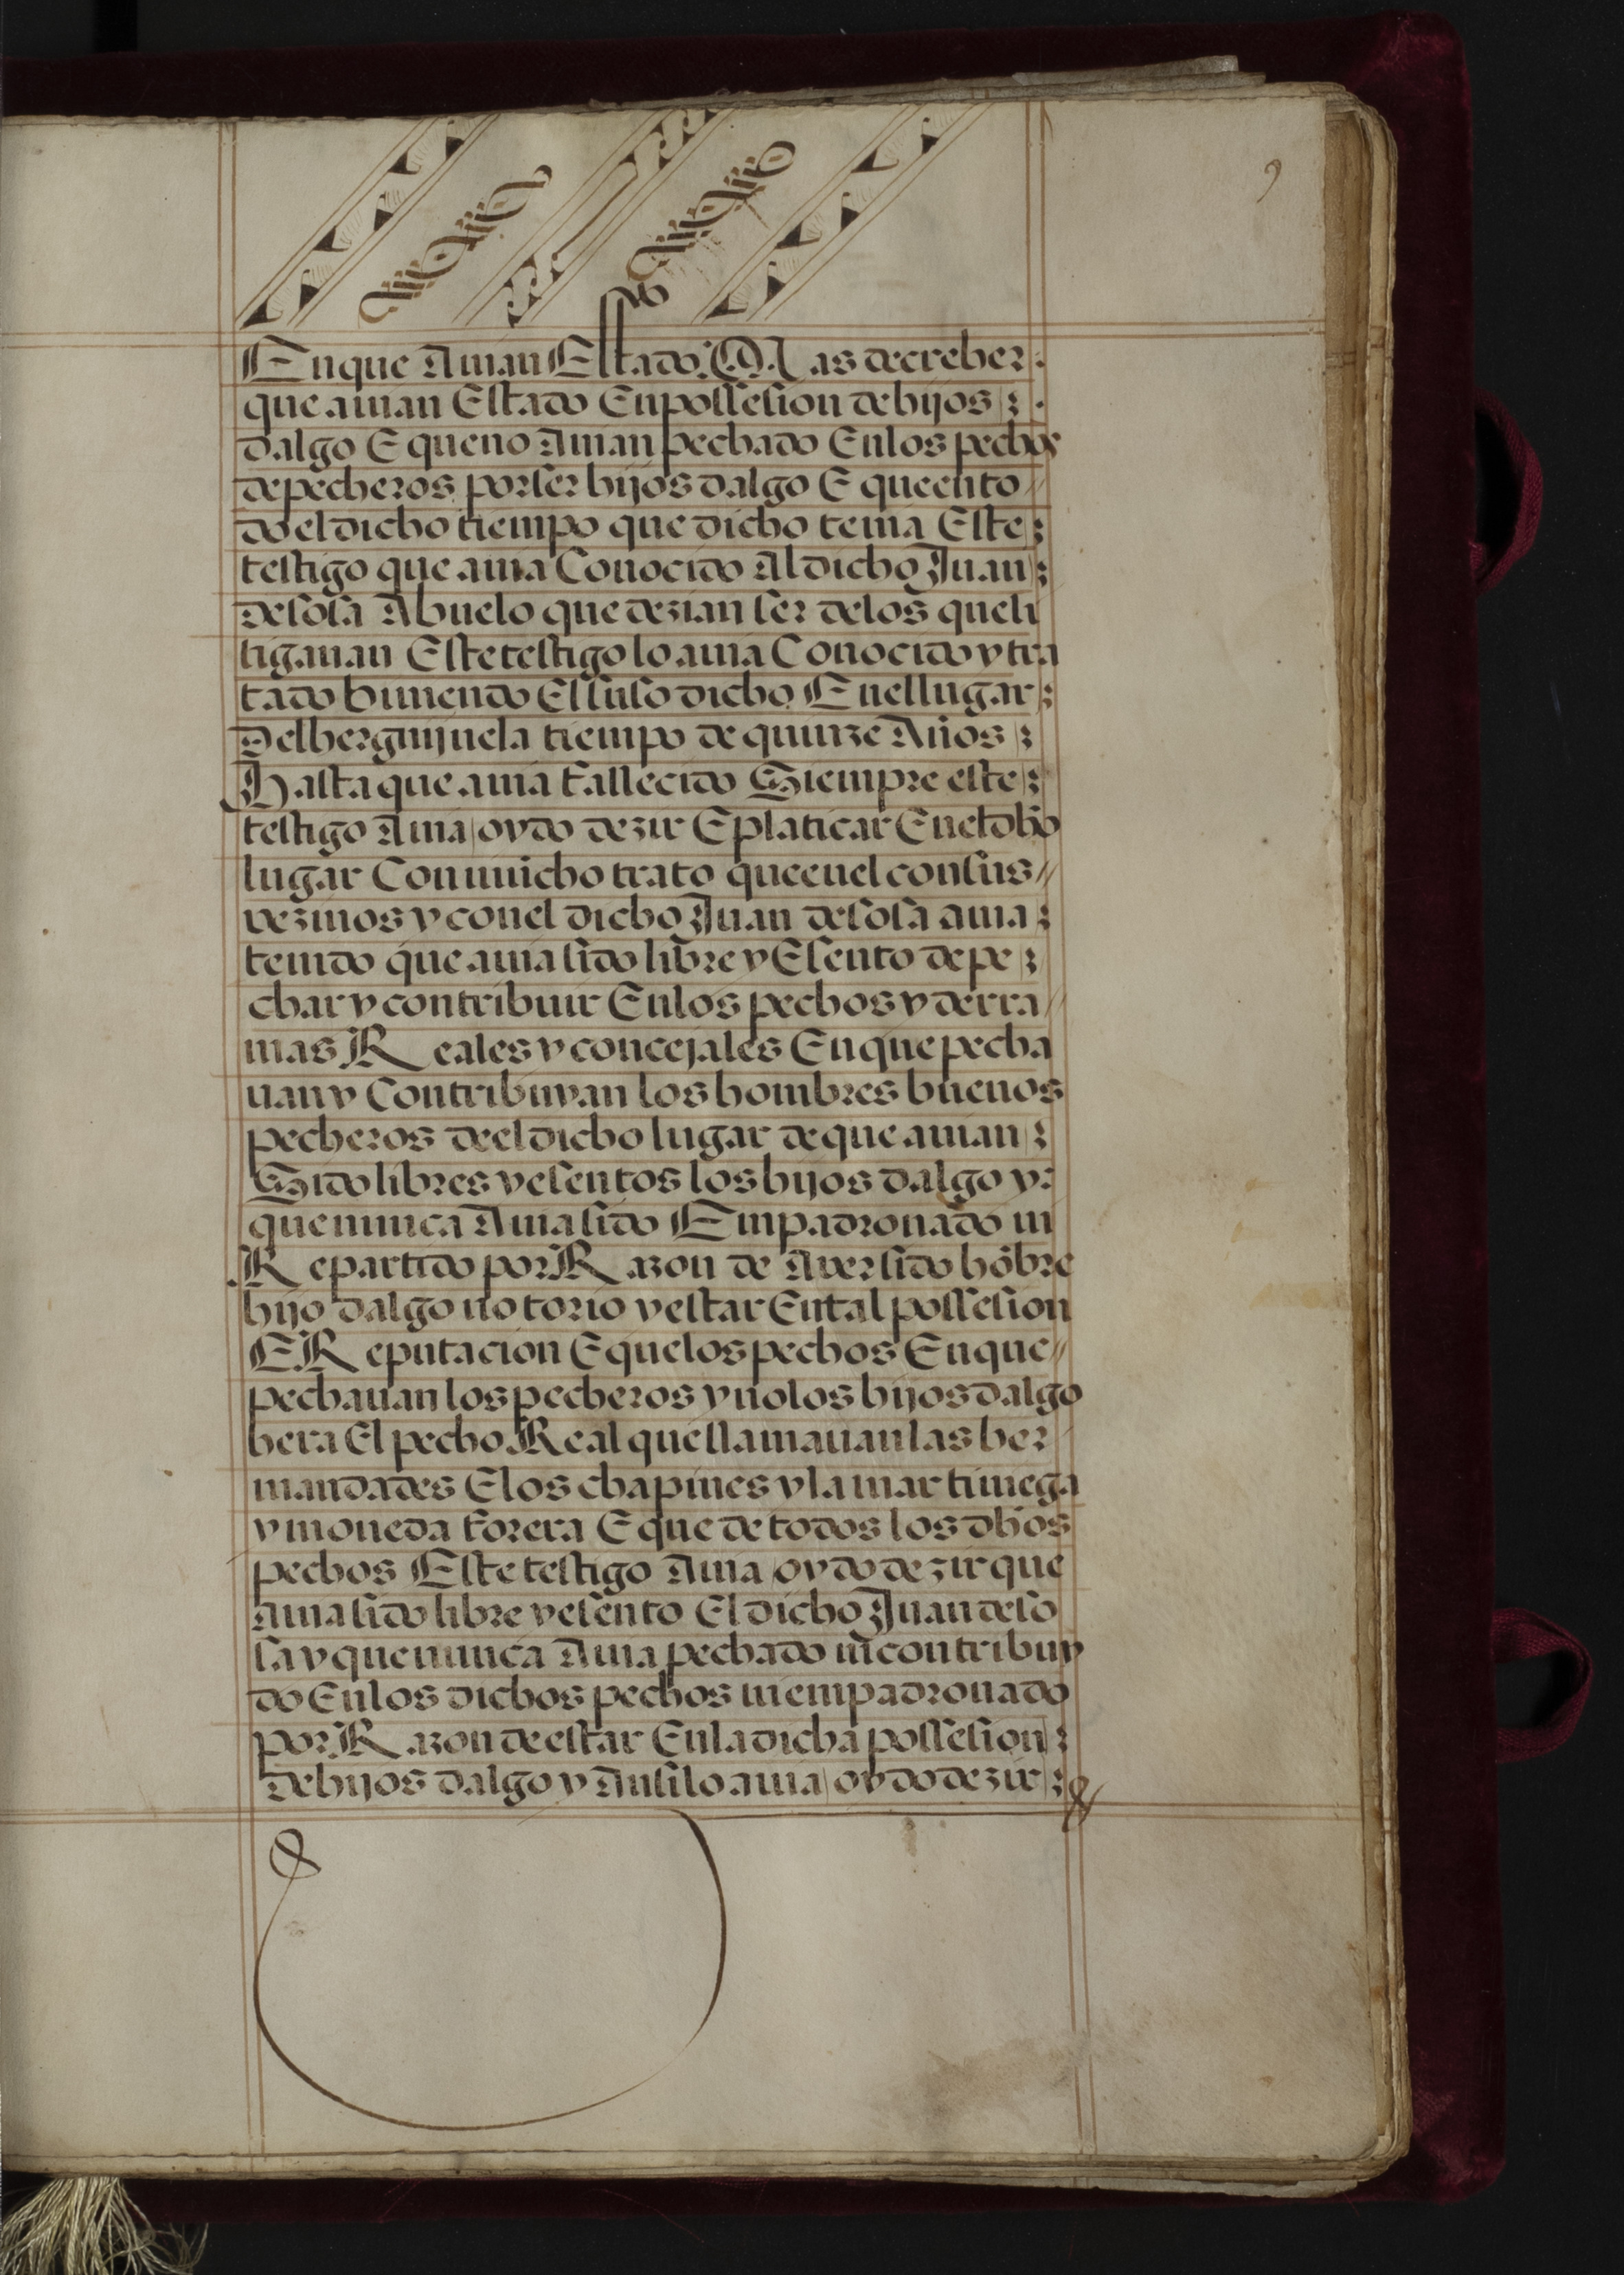 9
Enque Auian Estado. Mas decreher.
que auian Estado Enpossesion de hijos
dalgo E queno Auian pechado Enlos pechos
de pecheros porser hijos dalgo E queento
do el dicho tiempo que dicho tenia Este
testigo que auia Conocido Al dicho Juan
desosa Abuelo que dezian ser delos queli
tigauan Estetestigo lo auia Conocido y tra
tado biuiendo El suso dicho Enellugar
Delherguijuela tiempo de quinze Años
Hasta que auia fallecido Siempre este
testigo Auia oydo dezir E platicar Eneldho
lugar Con mucho trato queenel consus
vezinos y conel dicho Juan desosa auia
tenido que auia sido libre y Esento depe
char y contribuir Enlos pechos y derra
mas Reales y concejales Enque pecha
uan y Contribuyan los hombres buenos
pecheros deel dicho lugar deque auian
Sido libres y esentos los hijos dalgo y
que nunca Auia sido Empadronado ni
Repartido por Razon de Aver sido hõbre
hijo dalgo notorio y estar Ental possesion
E Reputacion E quelos pechos Enque
pechauan los pecheros y nolos hijos dalgo
hera El pecho Real quellamauan las her
mandades E los chapines y la martiniega
y moneda forera E que de todos los dhos
pechos Este testigo Auia oydo dezir que
Auia sido libre y esento El dicho Juan deso
sa y que nunca Auia pechado ni contribuy
do Enlos dichos pechos ni empadronado
por Razon deestar Enla dicha possesion
de hijos dalgo y Ansi lo auia oydo dezir